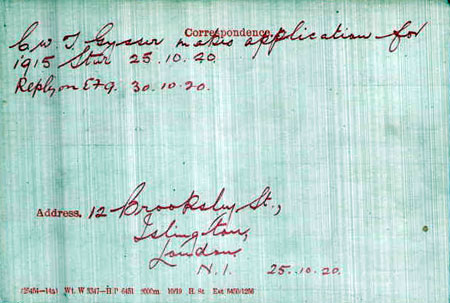 Correspondence.
C W T Gysser makes application for
1915 Star 25.10.20.
Reply on E79. 30.10.20.
Address. 12 Brooksby St.,
Islington,
London.
N.1. 25.10.20.
Wt. W 5347—H P 6451 2000m. 10/19 H. St.